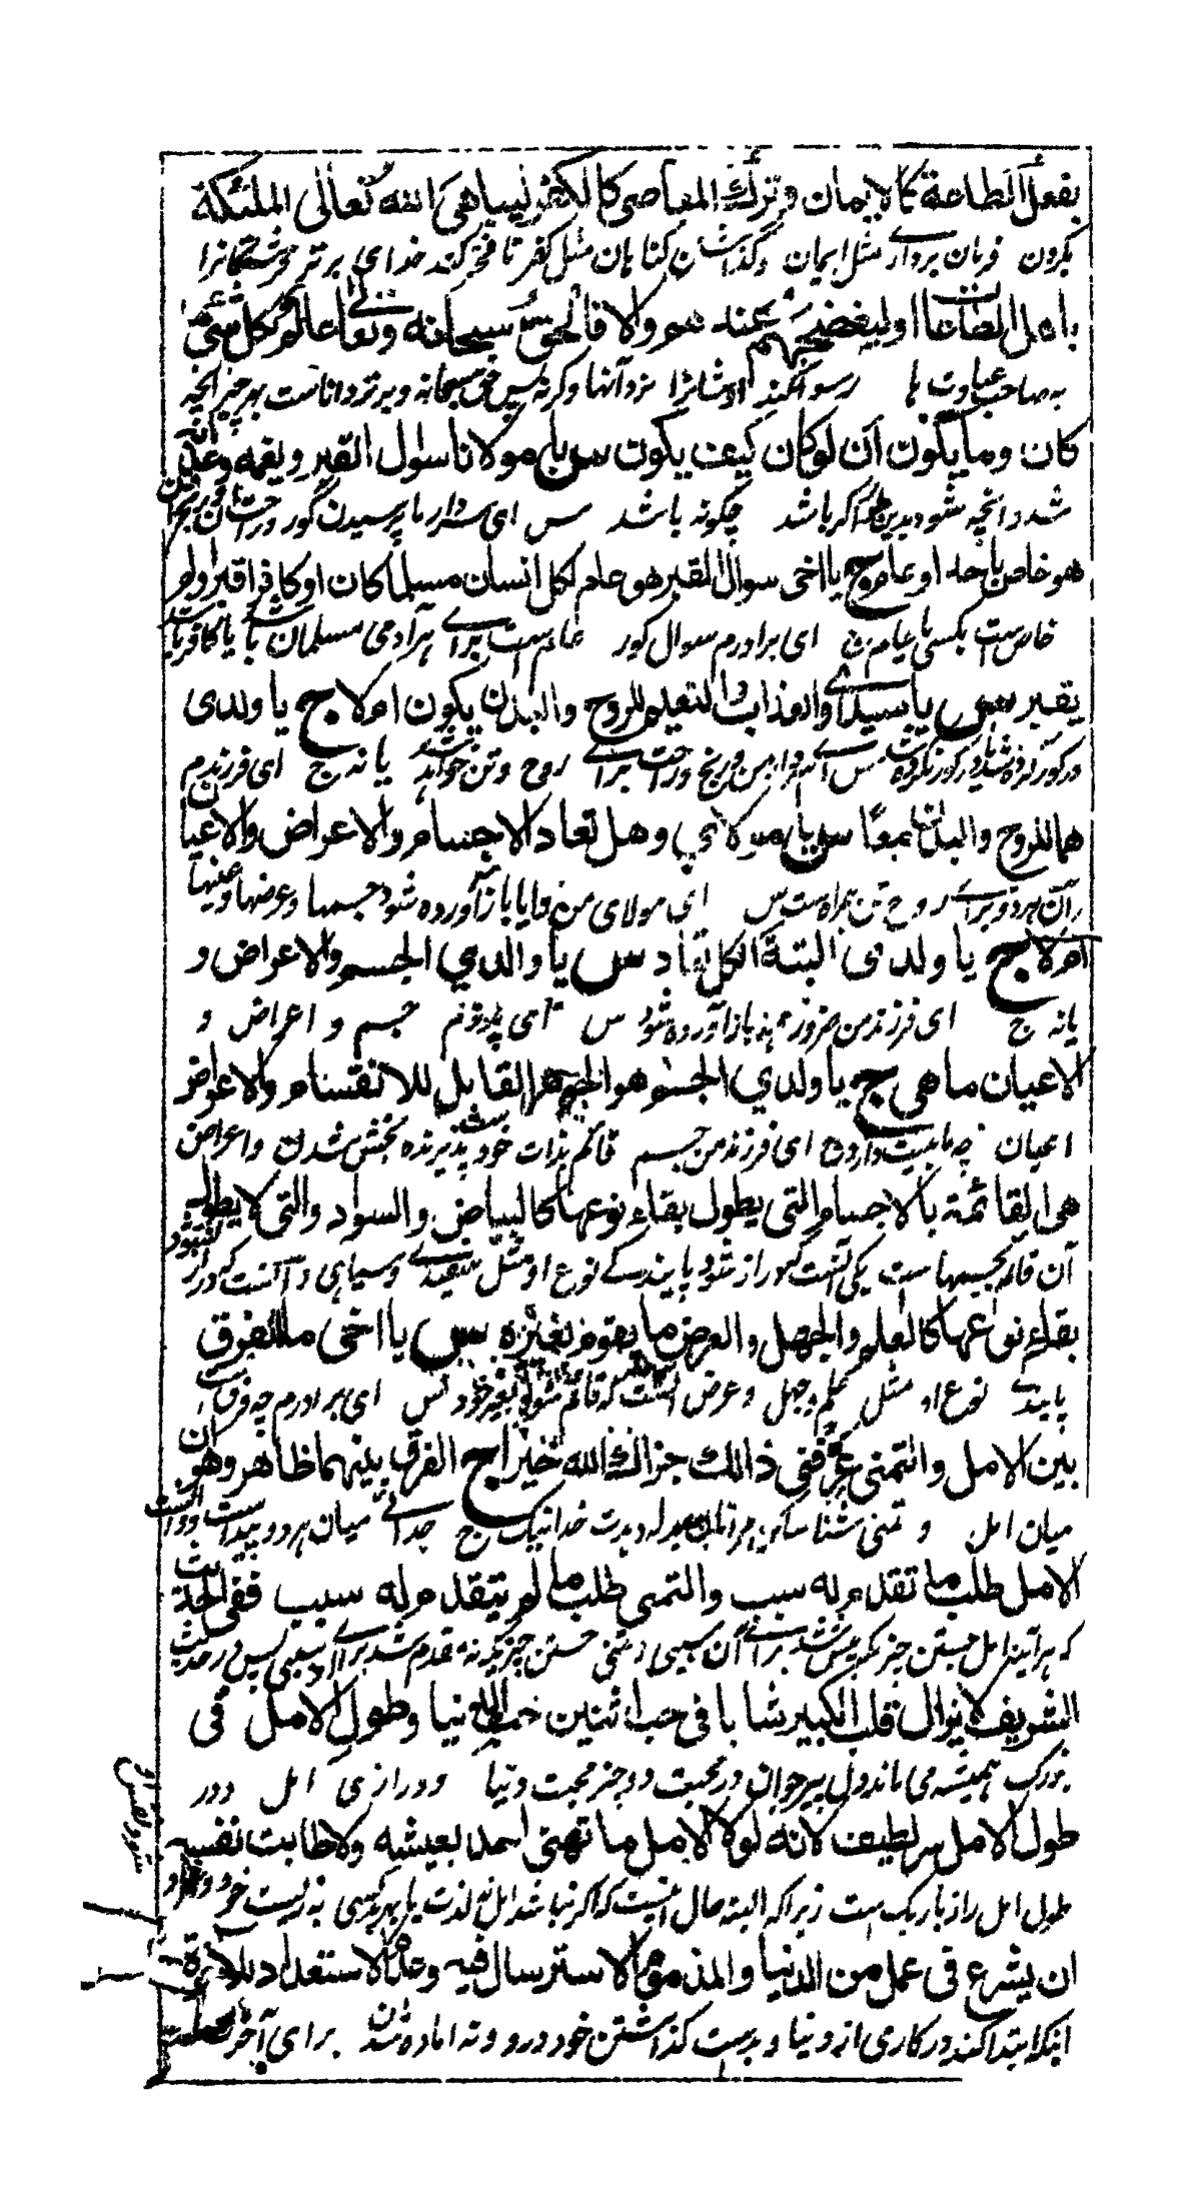 بفعل الطاعة كالايمان وترك المعاصي كالكفر ليباهي الله تعالى الملئكة
بکردن فرمان برداری مثل ایمان و گذاشتن گناهان مثل کفر تا فخر کند خدای برتر فرشتگانرا
باهل الطاعات او ليفضحهم عندهم والا فالحق سبحانه وتعالى عالم بكل شئ
به صاحب عبادت ها رسوا کند ایشانرا نزد آنها وگرنه پس حق سبحانه وبرتر داناست بهر چیز انچه
كان وما يكون ان لو كان كيف يكون س يا مولانا سوال القبر ونعيمه وعذابه
شد و انچه شود بدین اگر باشد چگونه باشد س ای سردار ما پرسیدن گور وراحت ان ورنج ان
هو خاص باحد او عام ج يا اخي سوال القبر هو عام لكل انسان مسلما كان او كافرا قبر او لم
خاص است بکسی یا عام ج ای برادرم سوال گور عام است برای هر آدمی مسلمان باشد یا کافر
يقبر س يا سيدي والعذاب والنعيم للروح والبدن يكون ام لا ج يا ولدي
در گور کرده شد یا در گور نکرده شد س ای سردار من ورنج وراحت برای روح وتن خواهد شد یا نه ج ای فرزندم
هما للروح والبدن معا س يا مولائي وهل تعاد الاجسام والاعراض والاعيان
آن هر دو برای روح تن همراه ست س ای مولای من وایا باز آورده شود جسمها وعرضها وعینها
ام لا ج يا ولدي البتة الكل تعاد س يا والدي الجسم والاعراض و
یا نه ج ای فرزند من ضرور همه باز آورده شود س ای پدرم جسم و اعراض و
الاعيان ما هي ج يا ولدي الجسم هو الجوهر القابل للانقسام والاعراض
اعیان چه ماهیت دارد ج ای فرزند من جسم قائم بذات خود پذیرنده بخش شدن واعراض
هي القائمة بالاجسام التي يطول بقاء نوعها كالبياض والسواد والتي لا يطول
آن قائم بجسمهاست یکی آنست که دراز شود پایندگی نوع او مثل سفیدی وسیاهی و آنست که دراز نشود
بقاء نوعها كالعلم والجهل والعرض ما يقوم بغيره س يا اخي ما الفرق
پایندگی نوع او مثل علم وجهل وعرض آنست که قائم شود بغیر خود س ای برادرم چه فرق است
بين الامل والتمني عرفني ذالك جزاك الله خيرا ج الفرق بينهما ظاهر وهو ان
میان امل و تمنی شناسا کن مرا بدله دهدت خدا نیک ج جدائی میان هر دو پیداست و آنست
الامل طلب ما تقدم له سبب والتمني طلب ما لم يتقدم له سبب ففي الحديث
که هر آینه امل جستن چیزیکه پیش شد برای آن سببی و تمنی جستن چیزیکه نه مقدم شد برای او سببی پس در حدیث
الشريف لا يزال قلب الكبير شابا في حب اثنين حب الدنيا وطول الامل في
بزرگ همیشه می ماند دل پیر جوان در محبت دو چیز محبت دنیا ودرازی امل ودر
طول الامل سر لطيف لانه لولا الامل ما تهنى احد بعيشه ولا طابت نفسه
طول امل راز باریک ست زیرا که البته حال اینست که اگر نباشد امل نه لذت یابد کسی به زیست خود
ان يشرع في عمل من الدنيا والمذموم الاسترسال فيه وعدم الاستعداد للآخرة
اینکه ابتدا کند در کاری از دنیا وبدست گذاشتن خود درو ونه اماده شدن برای آخرت